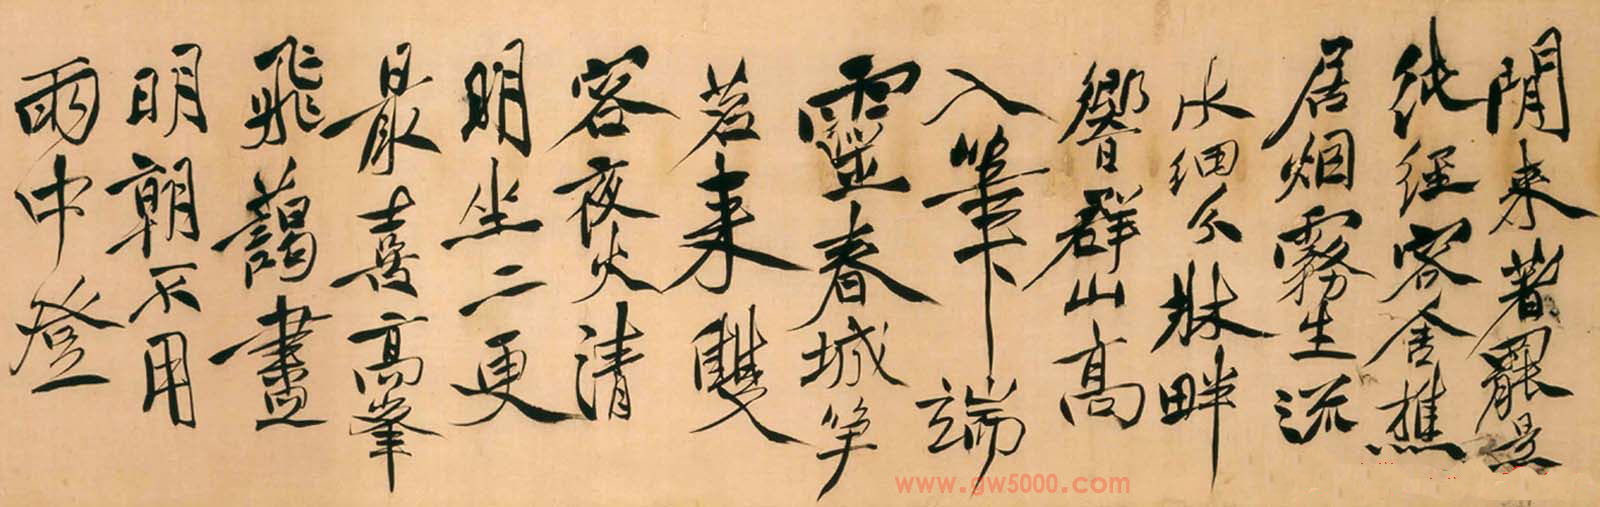 閒来著罷景
純經客舍樵
居烟霧生流
水细分牀畔
響群山高
入筆端
靈春城争
若来雙
客夜火清
明坐二更
最喜高峯
飛藹盡
明朝不用
雨中登
www.gw5000.com